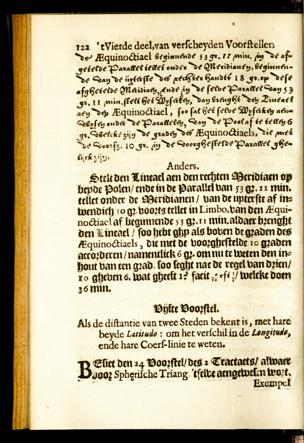 122 't Vierde deel, van verscheyden Voorstellen
de Æquinoctiael beginnende 53 gr. 11 min. in de af-
getelde Parallel tellet onder de Meridianen, beginnen-
de van de uyterste des rechter handts 18 gr. op dese
afghetelde Meridiaen, ende in de selve Parallel van 53
gr. 11 min. stelt het Wyserken, dan brenght den Lineael
aen den Æquinoctiael, soo sal het selve Wyserken aen-
wysen onder de Parallelen, van de Pool af te tellen 6
gr. welcke zijn de graden des Æquinoctiaels, die met
de voorsz. 10 gr. in de voorghestelde Parallel ghe-
lijck zijn.
Anders.
Stelt den Lineael aen den rechten Meridiaen op
beyde Polen / ende in de Parallel van 53 gr. 11 min.
tellet onder de Meridianen / van de uyterste af in-
wendich 10 gr. voorts teller in Limbo, van den Æqui-
noctiael af beginnende 53 gr. 11 min. aldaer brenght
den Lineael / soo hebt ghy als boven de graden des
Æquinoctiaels, die met de voorghestelde 10 graden
accorderen / namentlick 6 gr. om nu te weten den in-
hout van ten grad. soo seght nae de regel van drien /
10 gheven 6. wat gheeft 1? facit oft / welcke doen
36 min.
Vijfte Voorstel.
Als de distantie van twee Steden bekent is, met hare
beyde Latitudo: om het verschil in de Longitudo,
ende hare Coers-linie te weten.
BEsiet den 24 Voorstel / des 2 Tractaets / alwaer
voor Spherische Triang 't selve aengewesen wort.
Exempel